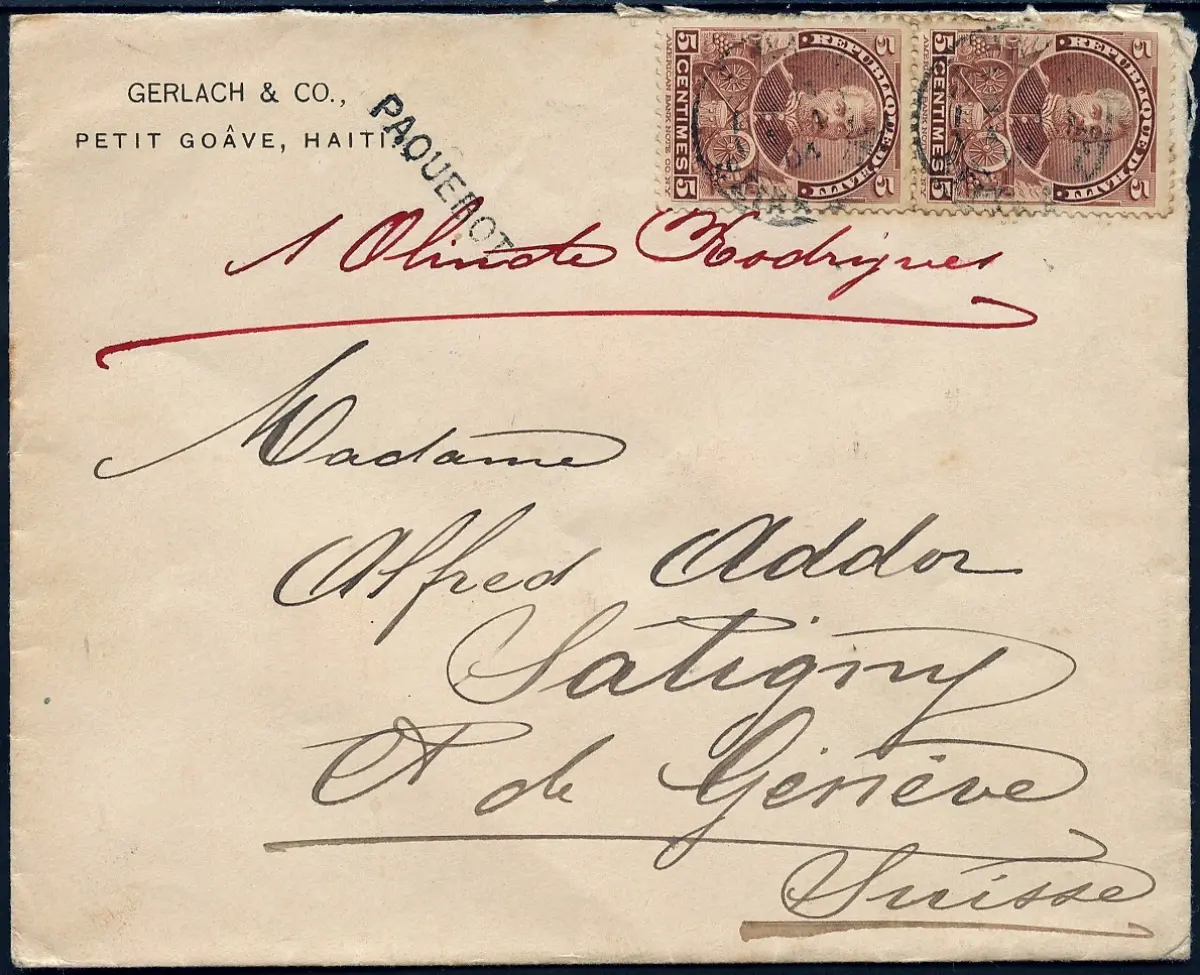 GERLACH & CO.,
PETIT GOÂVE, HAITI.
PAQUEBOT
5 CENTIMES 5
REPUBLIQUE D'HAITI
5 5
AMERICAN BANK NOTE CO. N.Y.
5 CENTIMES 5
REPUBLIQUE D'HAITI
5 5
AMERICAN BANK NOTE CO. N.Y.
Olinde Rodrigues
Madame
Alfred Addor
Satigny
Ct de Genève
Suisse